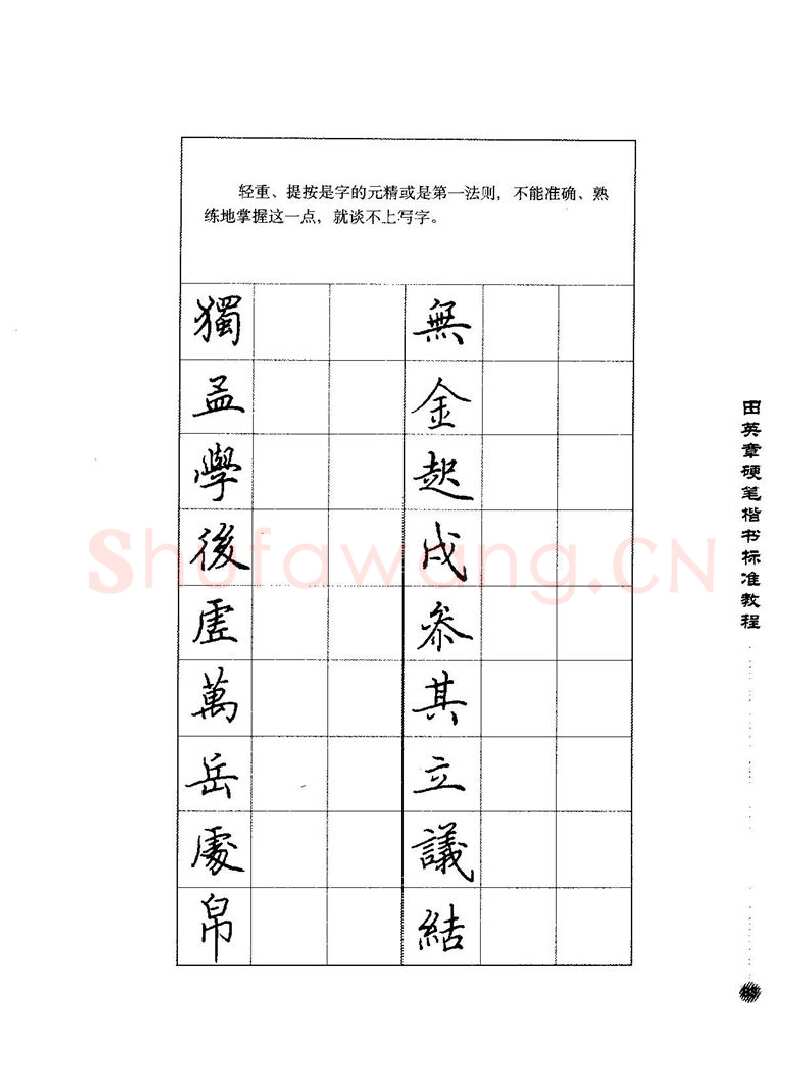 轻重、提按是字的元精或是第一法则，不能准确、熟
练地掌握这一点，就谈不上写字。
獨 無
孟 金
學 起
後 戌
虛 參
萬 其
岳 立
處 議
帛 結
田英章硬笔楷书标准教程
Shufawang.CN